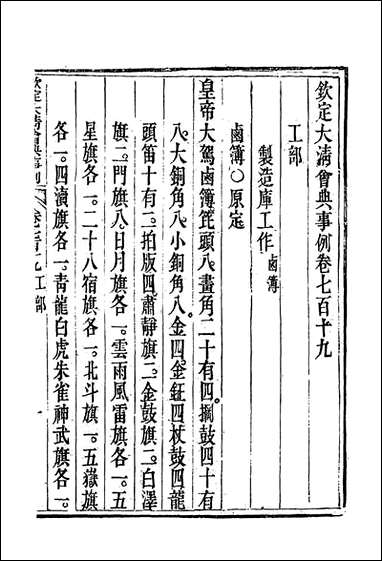 欽定大清會典事例卷七百十九
工部
製造庫工作鹵簿
鹵簿○原定
皇帝大駕鹵簿篦頭八畫角二十有四掆鼓四十有
八大銅角八小銅角八金四金鉦四杖鼓四龍
頭笛十有二拍版四肅靜旗二金鼓旗二白澤
旗二門旗八日月旗各一雲雨風雷旗各一五
星旗各一二十八宿旗各一北斗旗一五嶽旗
各一四瀆旗各一青龍白虎朱雀神武旗各一
欽定大清會典事例 卷七百十九 工部 一